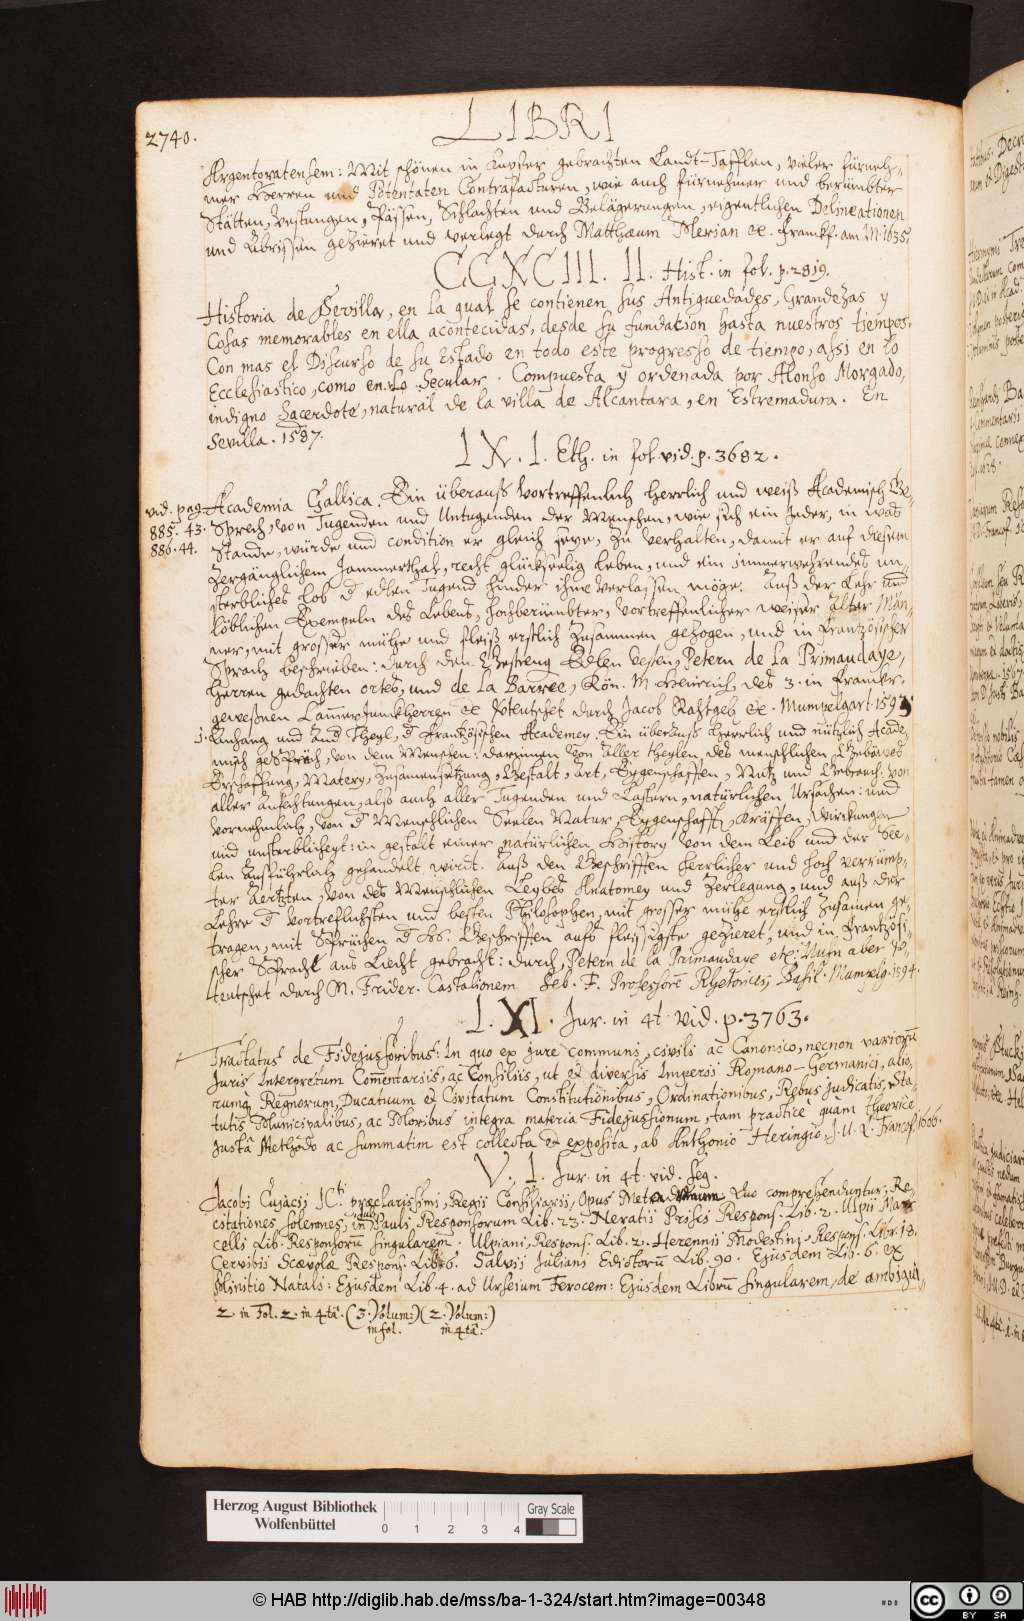 2740.
LIBRI
Argentoratensem: Mit schönen in Kupfer gebrachten Landt-Tafflen, vieler fürneh-
mer Herren und Potentaten Contrafacturen, wie auch fürnehmer und berümbter
Stätten, Vestungen, Pässen, Schlachten und Belägerungen, eigentlichen Delineationen
und Abrissen gezieret und verlegt durch Matthæum Merian &c. Franckf. am M. 1635.
CCXCIII. II. Hist. in fol. p. 2819.
Historia de Sevilla, en la qual se contienen sus Antiguedades, Grandezas y
Cosas memorables en ella acontecidas, desde su fundacion hasta nuestros tiempos.
Con mas el Discurso de su Estado en todo este progresso de tiempo, assi en lo
Ecclesiastico, como en lo Secular. Compuesta y ordenada por Alonso Morgado,
indigno Sacerdote, natural de la villa de Alcantara, en Estremadura. En
Sevilla. 1587.
LX. I. Eth. in fol. vid. p. 3682.
vid. pag. Academia Gallica. Ein überauß Vortreffenlich herrlich und weiß Academisch Ge-
885. 43. Sprech, von Tugenden und Untugenden der Menschen, wie sich ein Jeder, in was
886. 44. Stande, würde und condition er gleich seye, zu verhalten, damit er auf diesem
Zergänglichem Jammerthal, recht glückseelig leben, und ein immerwehrendes un-
sterbliches lob der edlen Tugend hinder ihme verlassen möge. Auß der Lehr und
löblichen Exempeln des Lebens, hochberümbter, vortreffenlicher weiser alter Män-
ner, mit grosser mühe und fleiß erstlich zusammen gezogen, und in Frantzösischer
Sprach beschrieben: durch den Gestreng Edlen Vesten, Petern de la Primaudaye,
Herren gedachten ortes, und de la Barree, Kön. M. Heinrich des 3. in Franckr.
gewesnen Cammerjunckherren &c. Verteutschet durch Jacob Rahtgeb &c. Mumpelgart. 1592.
j. Anhang und And Theyl, der frantzösischen Academey. Ein überauß herrlich und nützlich Acade-
misch gespräch, von dem Menschen: darinnen von aller theylen des menschlichen Gebäwes
Erschaffung, Matery, Zusamensetzung, Gestalt, art, Eygenschafften, Nutz und Gebrauch: von
aller anfechtungen, alß auch aller Tugenden und Lastern, natürlichen Ursachen: und
vornehmlich, von der Menschlichen Seelen Natur, Eygenschafft, Kräfften, Wirckungen
und unsterblicheyt: in gestalt einer natürlichen History von dem Leib und der See-
len Außführlich gehandelt wirdt. Auß den Geschrifften herrlicher und hoch verrümp-
ter Aertzten, von des Menschlichen Leybes Anatomey und Zerlegung, und auß der
Lehre der vortreflichsten und besten Philosophen, mit grosser mühe erstlich zusamen ge-
tragen, mit Sprüchen der H. Geschrifften aufs fleissigste gezieret, und in Frantzösi-
scher Sprach ans Liecht gebracht: durch, Petern de la Primaudaye etc: Nuhn aber Ver-
teutschet durch M. Frider. Castalionem Seb. F. Professorē Rhetorices, Basil. Mumpelg. 1594.
LXI. Jur. in 4t vid. p. 3763.
Tractatus de Fidejussoribus: In quo ex jure communi, civili ac Canonico, necnon variorū
Juris Interpretum Commentariis, ac Consiliis, ut et diversis Imperii Romano-Germanici, alio-
rumq Regnorum, Ducatuum et Civitatum Constitutionibus, Ordinationibus, Rebus judicatis, Sta-
tutis Municipalibus, ac Moribus integra materia Fidejussionum, tam practice quam theorice
justâ Methodo ac summatim est collecta et exposita, ab Anthonio Heringio, J. U. L. Francof. 1606.
V. I. Jur. in 4t vid. seg.
Jacobi Cujacij JCti præclarissimi, Regii Consiliarii, Opus Quo comprehenduntur, Re-
citationes solennes, in Pauli, Responsorum Lib. 23. Neratii Prisci Respons. Lib. 2. Ulpii Mar-
celli Lib. Responsorū singularem. Ulpiani, Respons. Lib. 2. Herennii Modestini Respons. Libr. 18.
Cervidii Scævolæ Respons. Lib. 6. Salvii Juliani Edictorū Lib. 90. Ejusdem Lib. 6. ex
Minitio Natalis: Ejusdem Lib. 4. ad Urseium Ferocem: Ejusdem Librū singularem, de ambigui-
2. in Fol. 2. in 4tâ. (3. Volum:) (2. Volum:)
in fol. in 4tâ.
Herzog August Bibliothek
Wolfenbüttel
0 1 2 3 4
Gray Scale
© HAB http://diglib.hab.de/mss/ba-1-324/start.htm?image=00348
cc BY SA